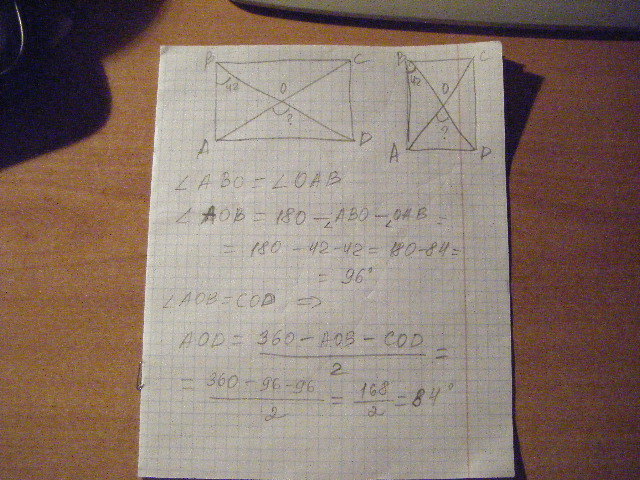 B C B C
42 O 42 O
? ?
A D A D
∠ABO = ∠OAB
∠AOB = 180 - ∠ABO - ∠OAB =
= 180 - 42 - 42 = 180 - 84 =
= 96°
∠AOB = COD ⇒
AOD = (360 - AOB - COD)/2 =
= (360 - 96 - 96)/2 = 168/2 = 84°